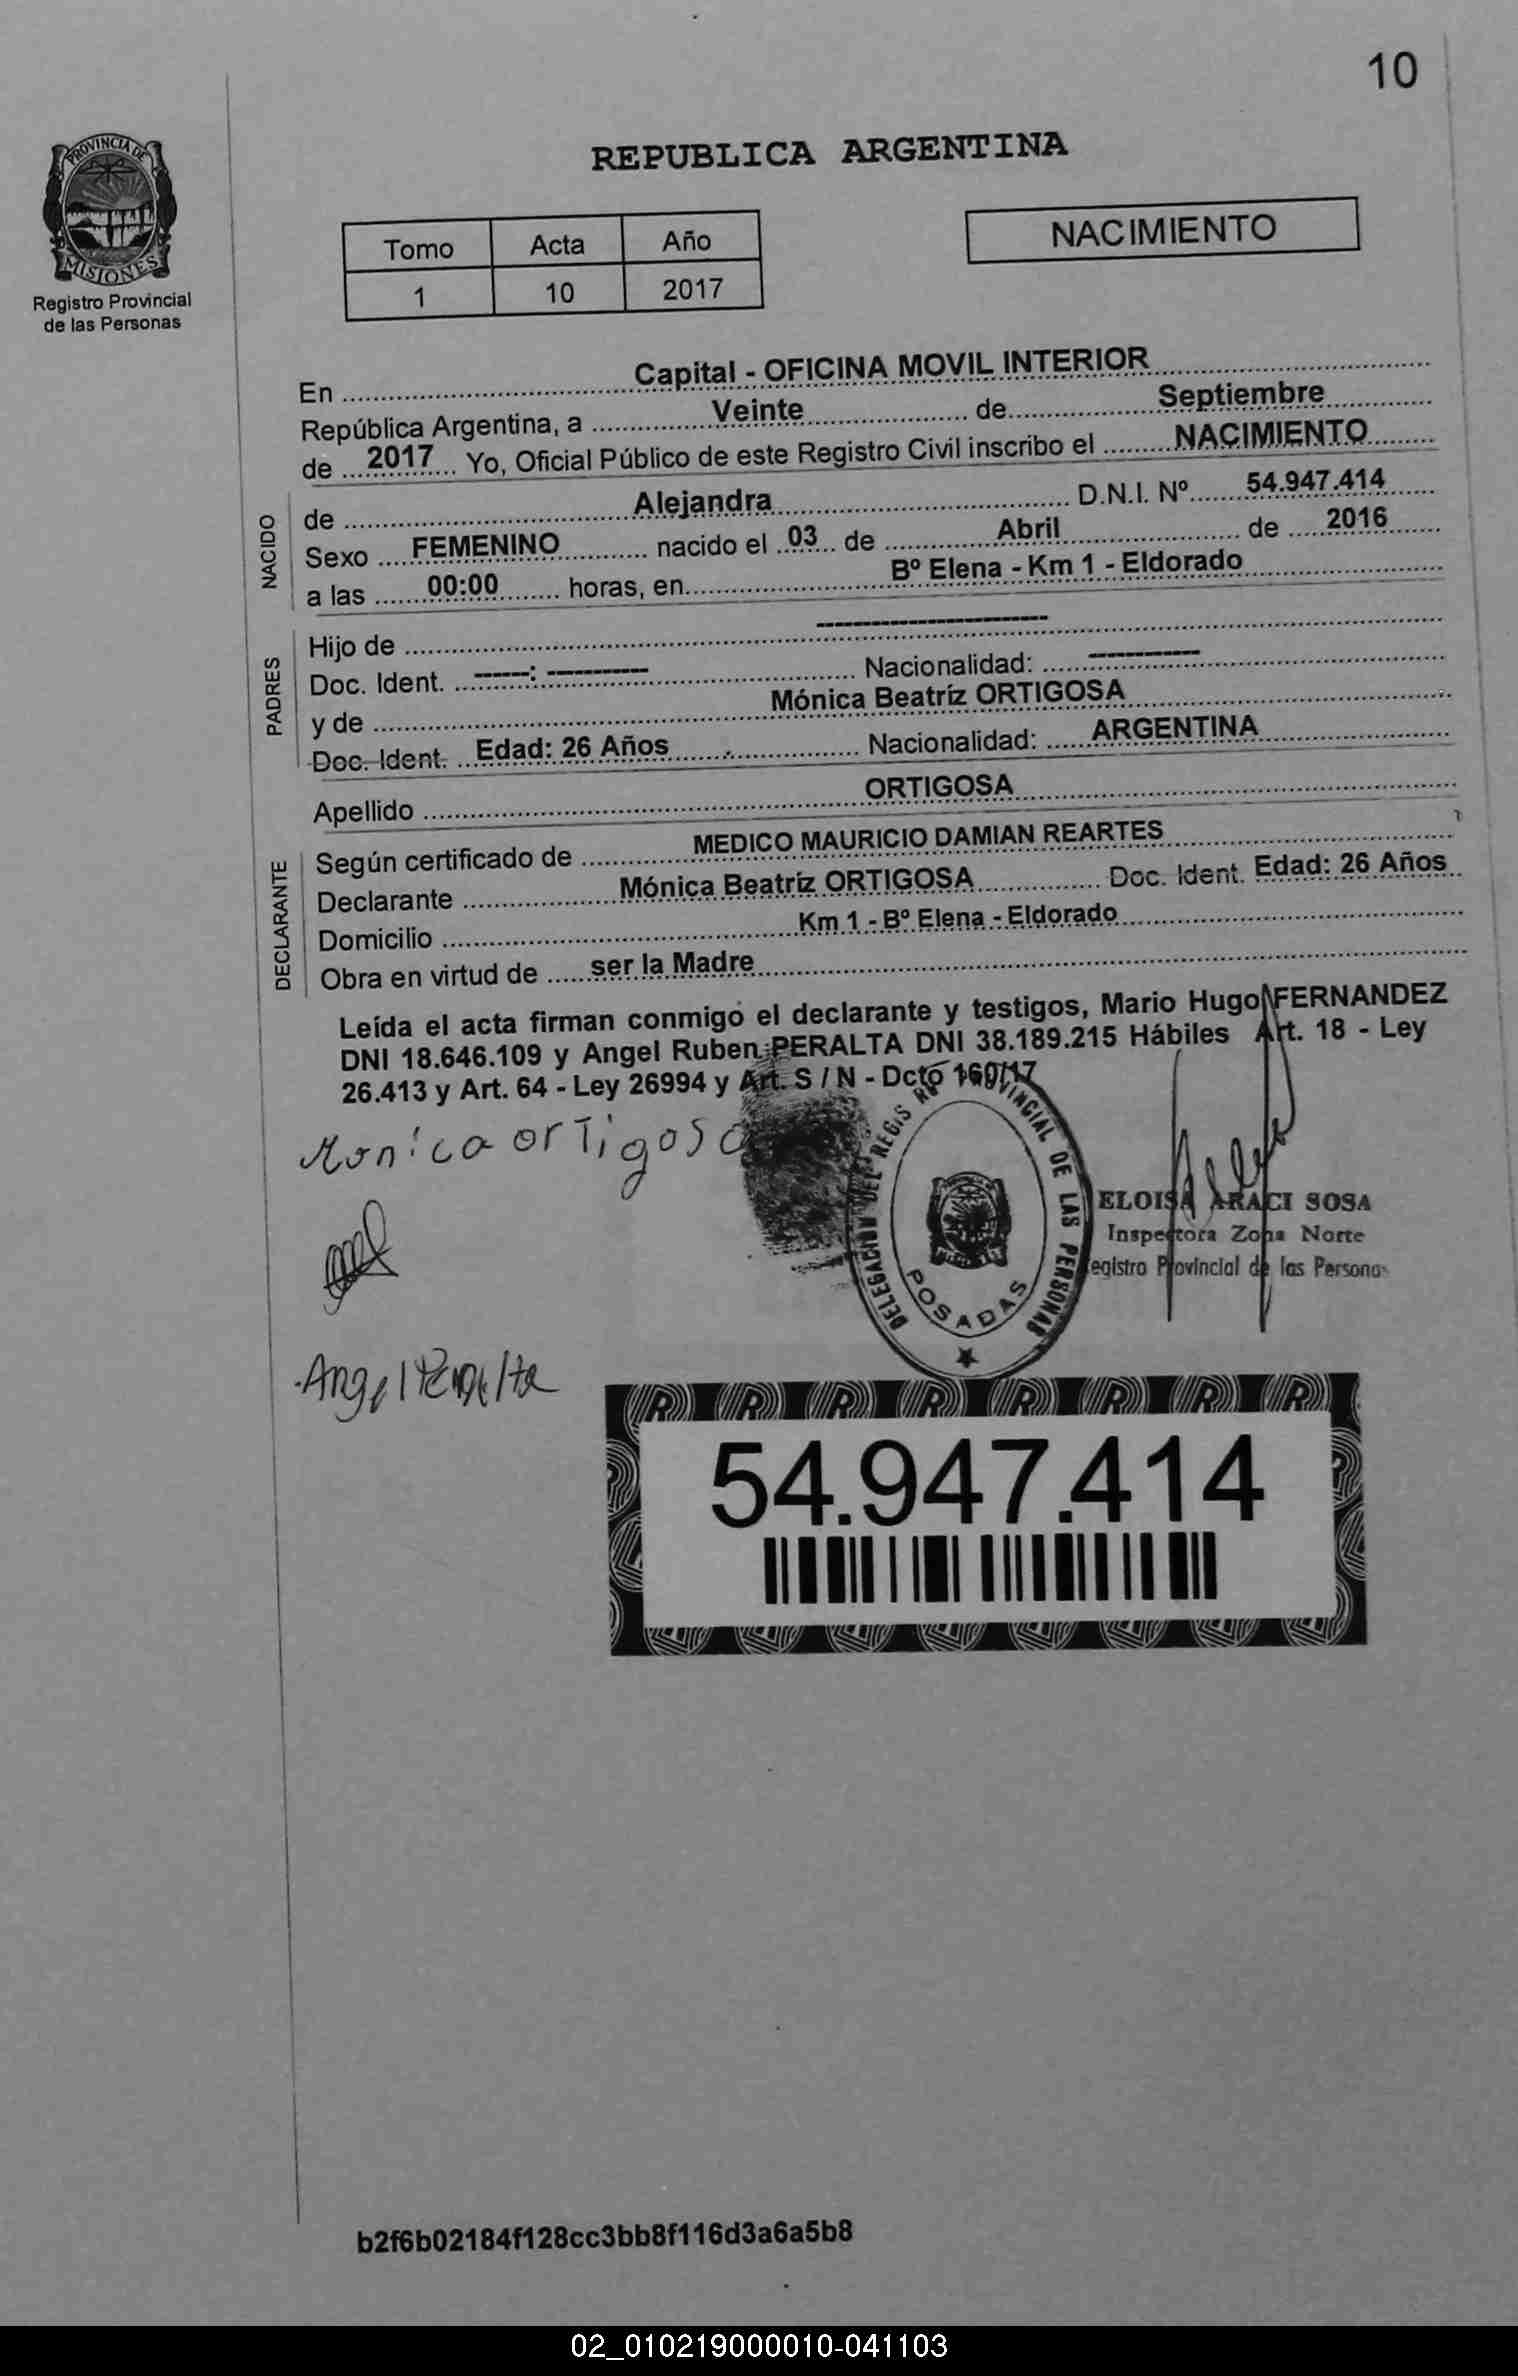 10
PROVINCIA DE
MISIONES
Registro Provincial
de las Personas
REPUBLICA ARGENTINA
Tomo Acta Año
1 10 2017
NACIMIENTO
En Capital - OFICINA MOVIL INTERIOR
República Argentina, a Veinte de Septiembre
de 2017 Yo, Oficial Público de este Registro Civil inscribo el NACIMIENTO
NACIDO
de Alejandra D.N.I. Nº 54.947.414
Sexo FEMENINO nacido el 03 de Abril de 2016
a las 00:00 horas, en Bº Elena - Km 1 - Eldorado
PADRES
Hijo de ------------------------
Doc. Ident. ------: ----------- Nacionalidad: ------------
y de Mónica Beatríz ORTIGOSA
Doc. Ident. Edad: 26 Años Nacionalidad: ARGENTINA
Apellido ORTIGOSA
DECLARANTE
Según certificado de MEDICO MAURICIO DAMIAN REARTES
Declarante Mónica Beatríz ORTIGOSA Doc. Ident. Edad: 26 Años
Domicilio Km 1 - Bº Elena - Eldorado
Obra en virtud de ser la Madre
Leída el acta firman conmigo el declarante y testigos, Mario Hugo FERNANDEZ
DNI 18.646.109 y Angel Ruben PERALTA DNI 38.189.215 Hábiles Art. 18 - Ley
26.413 y Art. 64 - Ley 26994 y Art. S / N - Dcto 160/17
Monica ortigosa
DELEGACION DEL REGIS PROVINCIAL DE LAS PERSONAS
POSADAS
ELOISA ARACI SOSA
Inspectora Zona Norte
egistro Provincial de las Personas
Angel Peralta
54.947.414
b2f6b02184f128cc3bb8f116d3a6a5b8
02_010219000010-041103